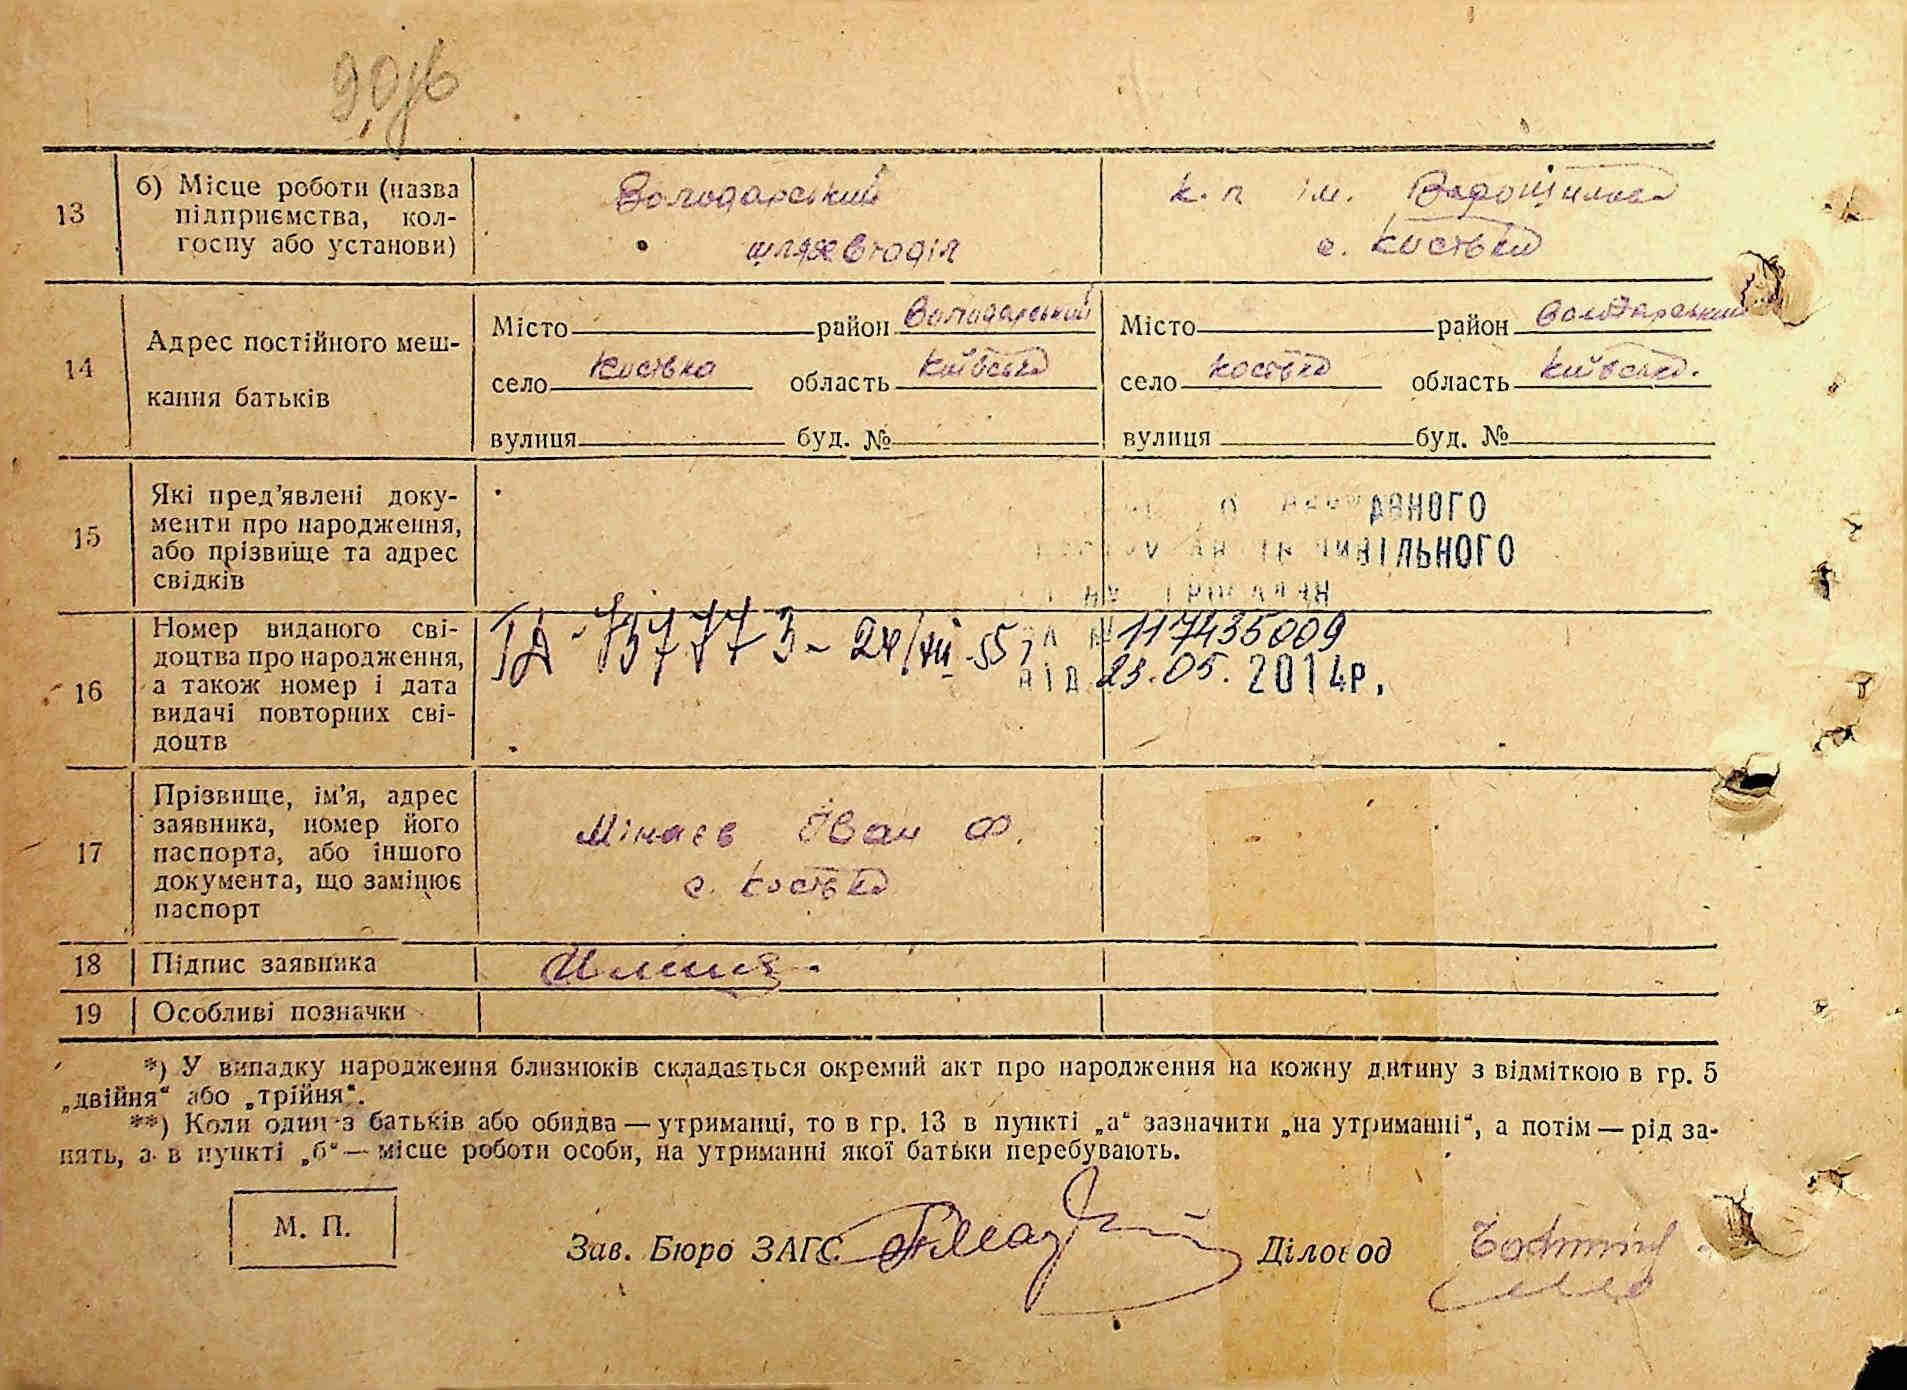 13 б) Місце роботи (назва підприємства, колгоспу або установи)
Володарський
шляхвідділ
к. п ім. Ворошилова
с. Костька
14 Адрес постійного мешкання батьків
Місто район Володарський
село Костька область Київська
вулиця буд. №
Місто район Володарський
село Костька область Київська.
вулиця буд. №
15 Які пред'явлені документи про народження, або прізвище та адрес свідків
16 Номер виданого свідоцтва про народження, а також номер і дата видачі повторних свідоцтв
117435009
від 23.05. 2014р.
17 Прізвище, ім'я, адрес заявника, номер його паспорта, або іншого документа, що замінює паспорт
Мінаєв Іван Ф.
с. Костька
18 Підпис заявника
19 Особливі позначки
*) У випадку народження близнюків складається окремий акт про народження на кожну дитину з відміткою в гр. 5
„двійня“ або „трійня“.
**) Коли один з батьків або обидва — утриманці, то в гр. 13 в пункті „а“ зазначити „на утриманні“, а потім — рід за-
нять, а в пункті „б“ — місце роботи особи, на утриманні якої батьки перебувають.
М. П.
Зав. Бюро ЗАГС
Діловод